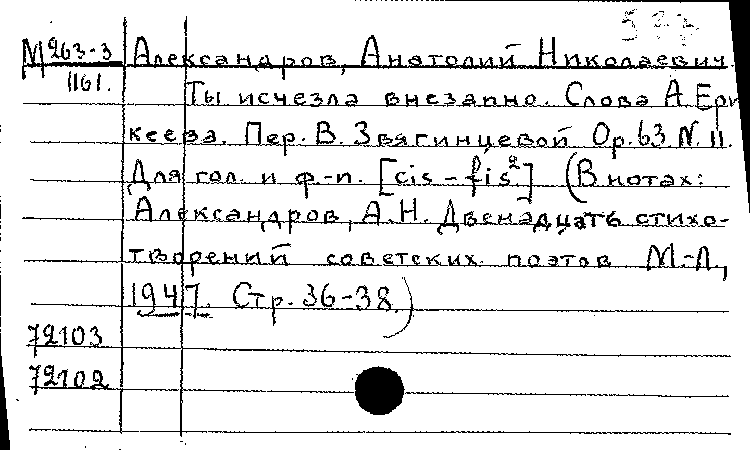 577
М 263-3 Александров, Анатолий Николаевич.
1161. Ты исчезла внезапно. Слова А. Ери
кеева. Пер. В. Звягинцевой Op. 63 N. 11.
Для гол. и ф.-п. [cis - fis²] (В нотах:
Александров, А.Н. Двенадцать стихо-
творений советских поэтов М.-Л.,
1947. Стр. 36-38.)
72103
72102